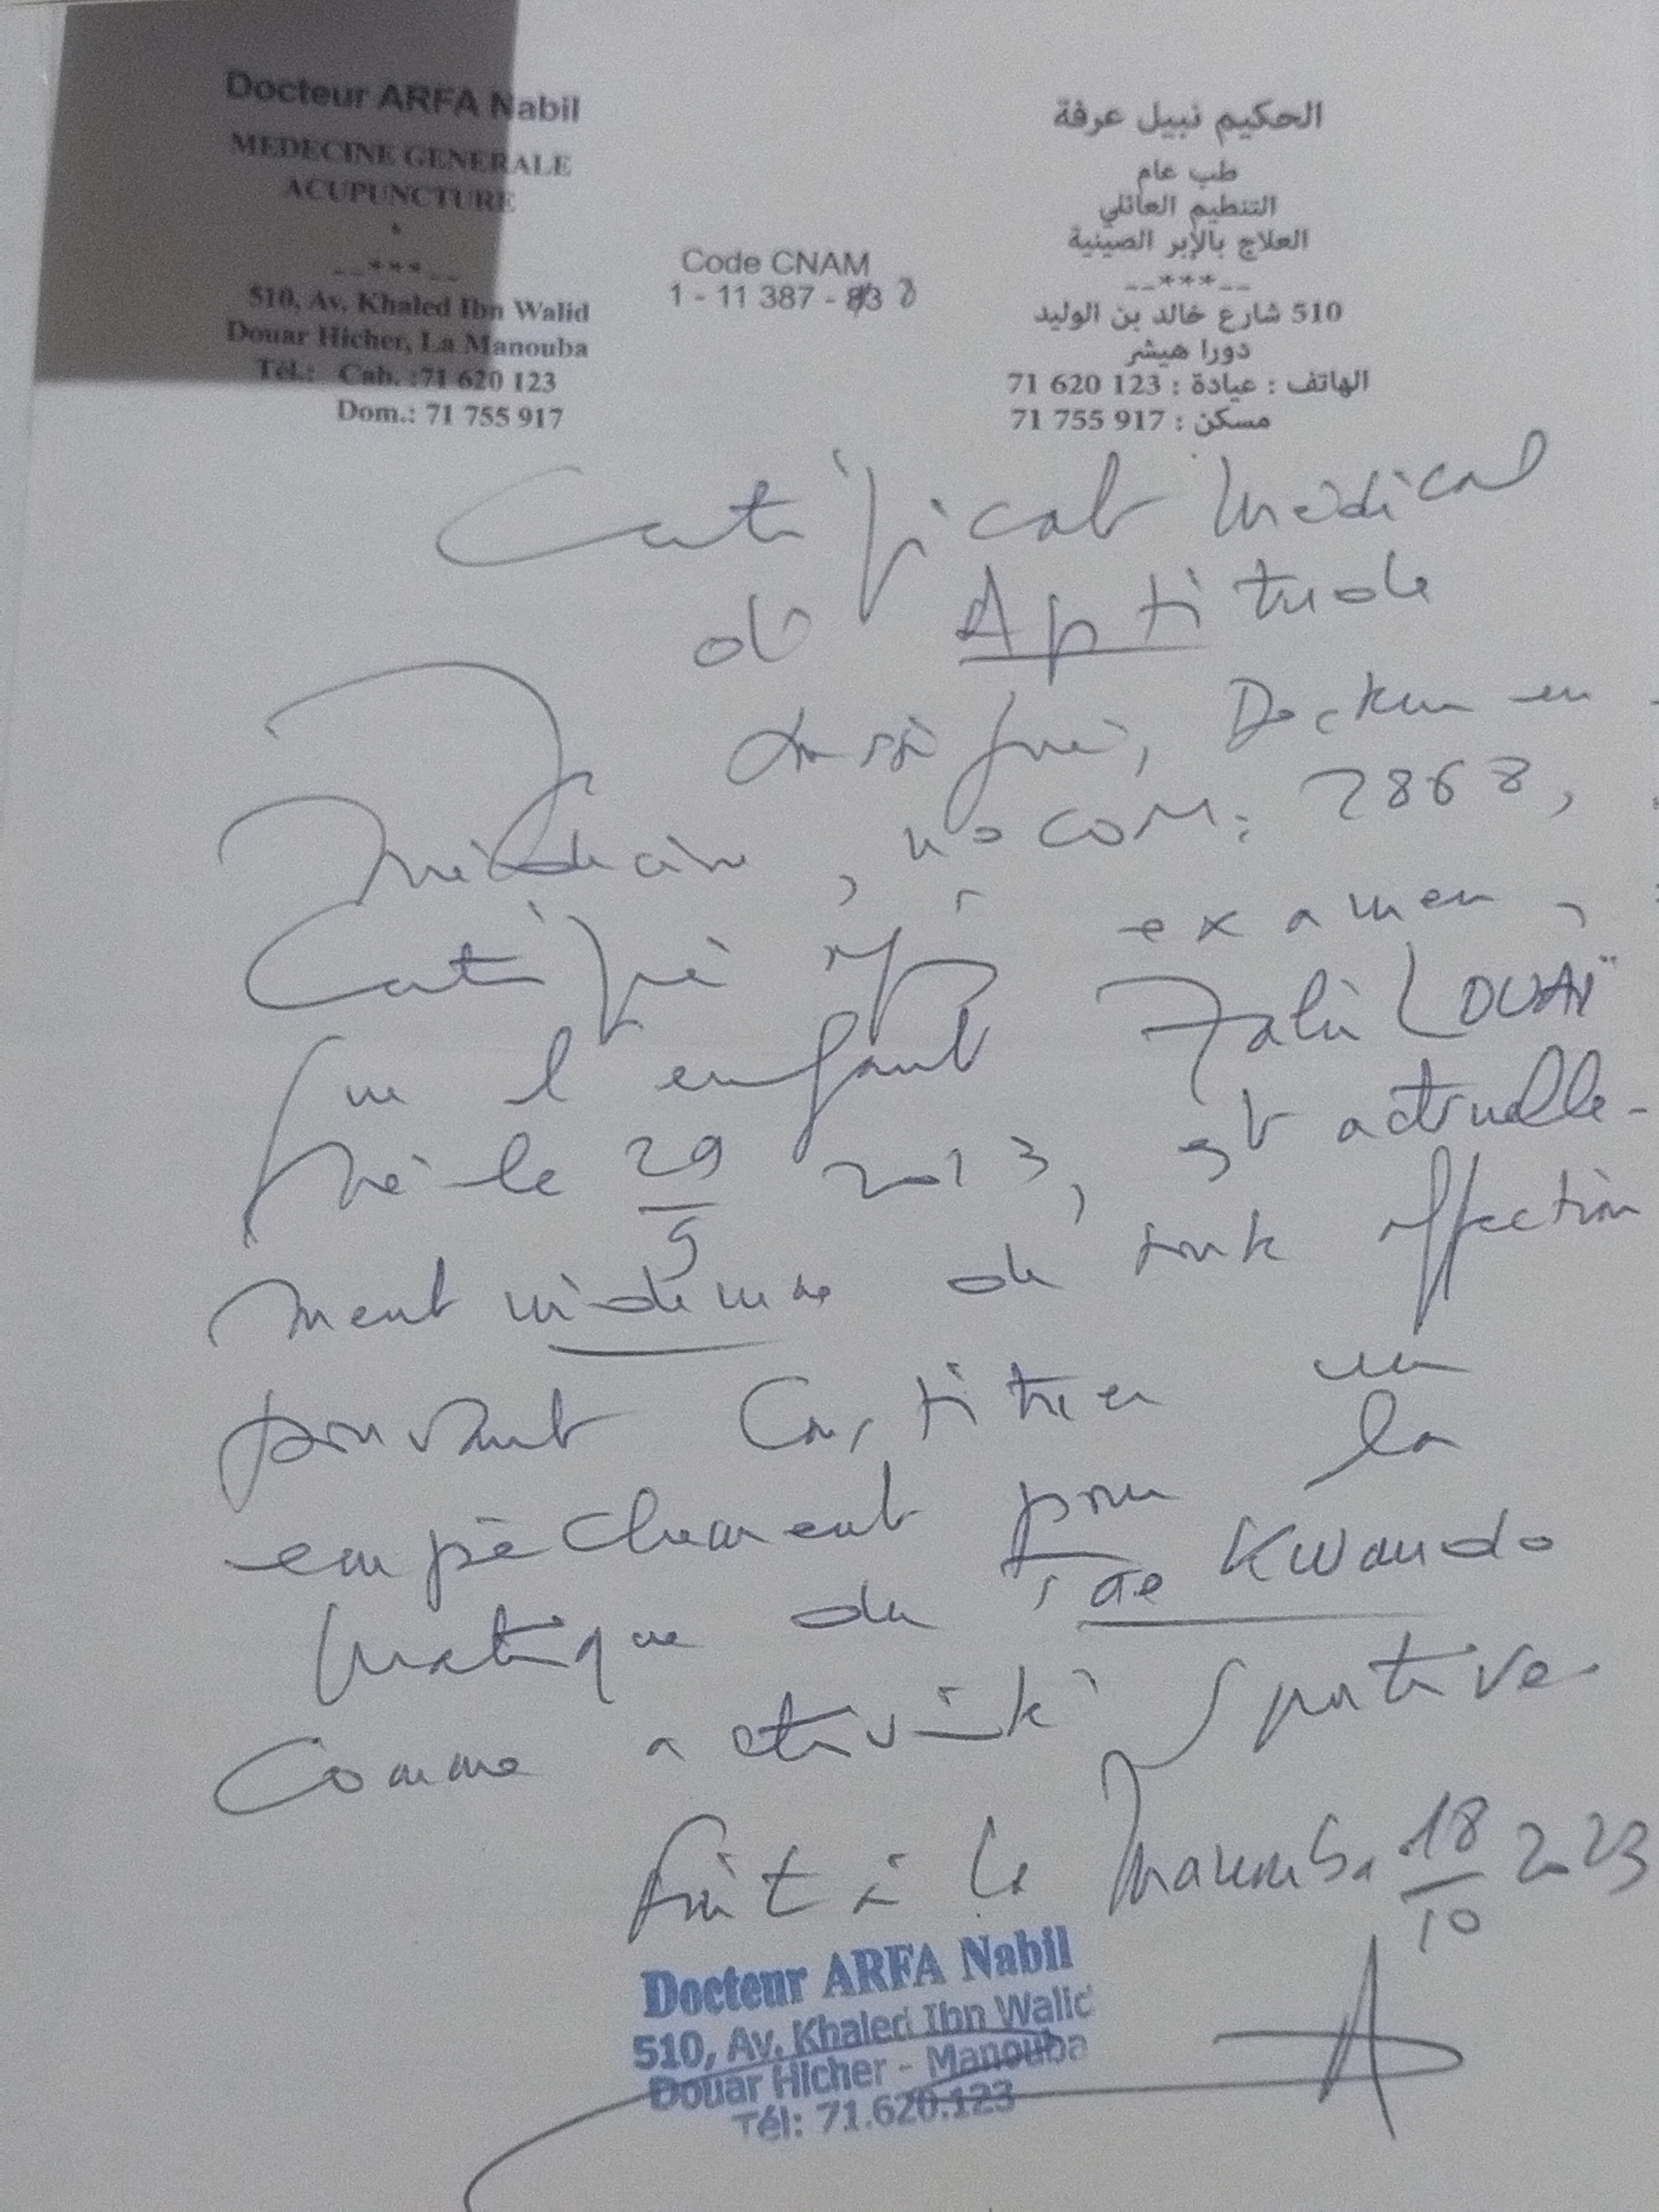 Docteur ARFA Nabil
MEDECINE GENERALE
ACUPUNCTURE
__***__
510, Av. Khaled Ibn Walid
Douar Hicher, La Manouba
Tél.: Cab. :71 620 123
Dom.: 71 755 917
Code CNAM
1 - 11 387 -
الحكيم نبيل عرفة
طب عام
التنظيم العائلي
العلاج بالإبر الصينية
__***__
510 شارع خالد بن الوليد
دورا هيشر
الهاتف : عيادة : 123 620 71
مسكن : 917 755 71
Certificat Médical
d' Aptitude
Je soussigné, Docteur en
Médecine, no COM: 2868,
Certifie après examen,
que l'enfant LOUAÏ
né le 29/5 2013, est actuelle-
ment indemne de toute affection
pouvant constituer un
empêchement pour la
pratique du Tae Kwando
comme activité sportive
fait à la Manouba 18/10 2023
Docteur ARFA Nabil
510, Av. Khaled Ibn Walid
Douar Hicher - Manouba
Tél: 71.620.123